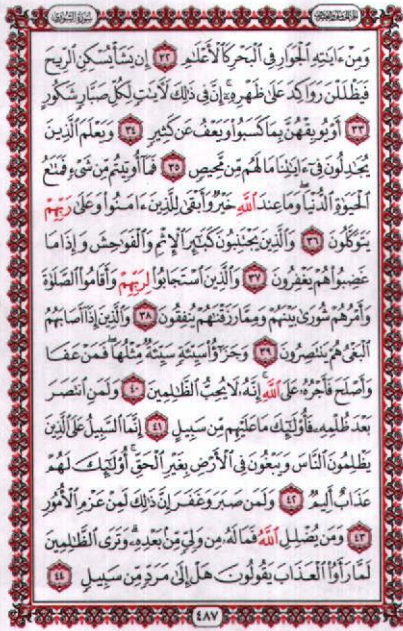 سُورَةُ الشُّورَىٰ
وَمِنْ ءَايَٰتِهِ ٱلْجَوَارِ فِى ٱلْبَحْرِ كَٱلْأَعْلَٰمِ ٣٢ إِن يَشَأْ يُسْكِنِ ٱلرِّيحَ
فَيَظْلَلْنَ رَوَاكِدَ عَلَىٰ ظَهْرِهِۦٓ إِنَّ فِى ذَٰلِكَ لَءَايَٰتٍ لِّكُلِّ صَبَّارٍ شَكُورٍ
٣٣ أَوْ يُوبِقْهُنَّ بِمَا كَسَبُوا۟ وَيَعْفُ عَن كَثِيرٍ ٣٤ وَيَعْلَمَ ٱلَّذِينَ
يُجَٰدِلُونَ فِىٓ ءَايَٰتِنَا مَا لَهُم مِّن مَّحِيصٍ ٣٥ فَمَآ أُوتِيتُم مِّن شَىْءٍ فَمَتَٰعُ
ٱلْحَيَوٰةِ ٱلدُّنْيَا وَمَا عِندَ ٱللَّهِ خَيْرٌ وَأَبْقَىٰ لِلَّذِينَ ءَامَنُوا۟ وَعَلَىٰ رَبِّهِمْ
يَتَوَكَّلُونَ ٣٦ وَٱلَّذِينَ يَجْتَنِبُونَ كَبَٰٓئِرَ ٱلْإِثْمِ وَٱلْفَوَٰحِشَ وَإِذَا مَا
غَضِبُوا۟ هُمْ يَغْفِرُونَ ٣٧ وَٱلَّذِينَ ٱسْتَجَابُوا۟ لِرَبِّهِمْ وَأَقَامُوا۟ ٱلصَّلَوٰةَ
وَأَمْرُهُمْ شُورَىٰ بَيْنَهُمْ وَمِمَّا رَزَقْنَٰهُمْ يُنفِقُونَ ٣٨ وَٱلَّذِينَ إِذَآ أَصَابَهُمُ
ٱلْبَغْىُ هُمْ يَنتَصِرُونَ ٣٩ وَجَزَٰٓؤُا۟ سَيِّئَةٍ سَيِّئَةٌ مِّثْلُهَا فَمَنْ عَفَا
وَأَصْلَحَ فَأَجْرُهُۥ عَلَى ٱللَّهِ إِنَّهُۥ لَا يُحِبُّ ٱلظَّٰلِمِينَ ٤٠ وَلَمَنِ ٱنتَصَرَ
بَعْدَ ظُلْمِهِۦ فَأُو۟لَٰٓئِكَ مَا عَلَيْهِم مِّن سَبِيلٍ ٤١ إِنَّمَا ٱلسَّبِيلُ عَلَى ٱلَّذِينَ
يَظْلِمُونَ ٱلنَّاسَ وَيَبْغُونَ فِى ٱلْأَرْضِ بِغَيْرِ ٱلْحَقِّ أُو۟لَٰٓئِكَ لَهُمْ
عَذَابٌ أَلِيمٌ ٤٢ وَلَمَن صَبَرَ وَغَفَرَ إِنَّ ذَٰلِكَ لَمِنْ عَزْمِ ٱلْأُمُورِ
٤٣ وَمَن يُضْلِلِ ٱللَّهُ فَمَا لَهُۥ مِن وَلِىٍّ مِّنۢ بَعْدِهِۦ وَتَرَى ٱلظَّٰلِمِينَ
لَمَّا رَأَوُا۟ ٱلْعَذَابَ يَقُولُونَ هَلْ إِلَىٰ مَرَدٍّ مِّن سَبِيلٍ ٤٤
٤٨٧